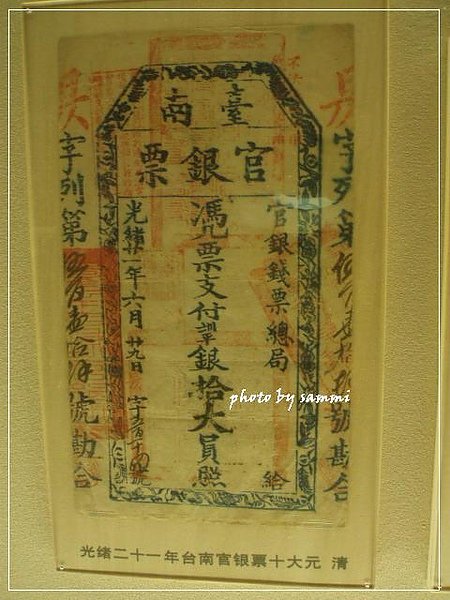 臺南
官銀票
字列第伍百壹拾號勘合
官銀錢票總局 給
憑票支付銀拾大員照
光緒廿一年六月廿九日 字號
字列第號勘合
photo by sammi
光绪二十一年台南官银票十大元 清